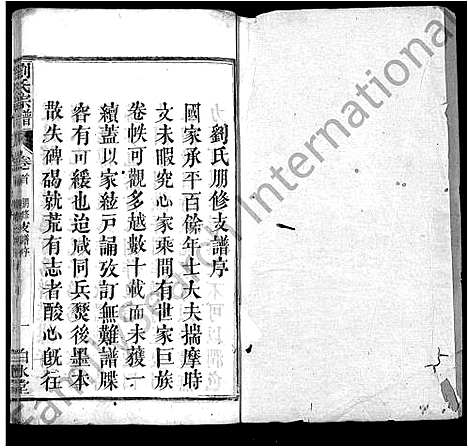 劉氏朋修支譜序
國家承平百餘年士大夫揣摩時
文未暇究心家乘間有世家巨族
卷帙可觀多越數十載而未獲一
續蓋以家絃戶誦攷訂無難譜牒
容有可緩也迨咸同兵燹後墨本
散失碑碣就荒有志者酸心旣往
劉氏宗譜
卷首
朋修支譜序
一
FamilySearch International